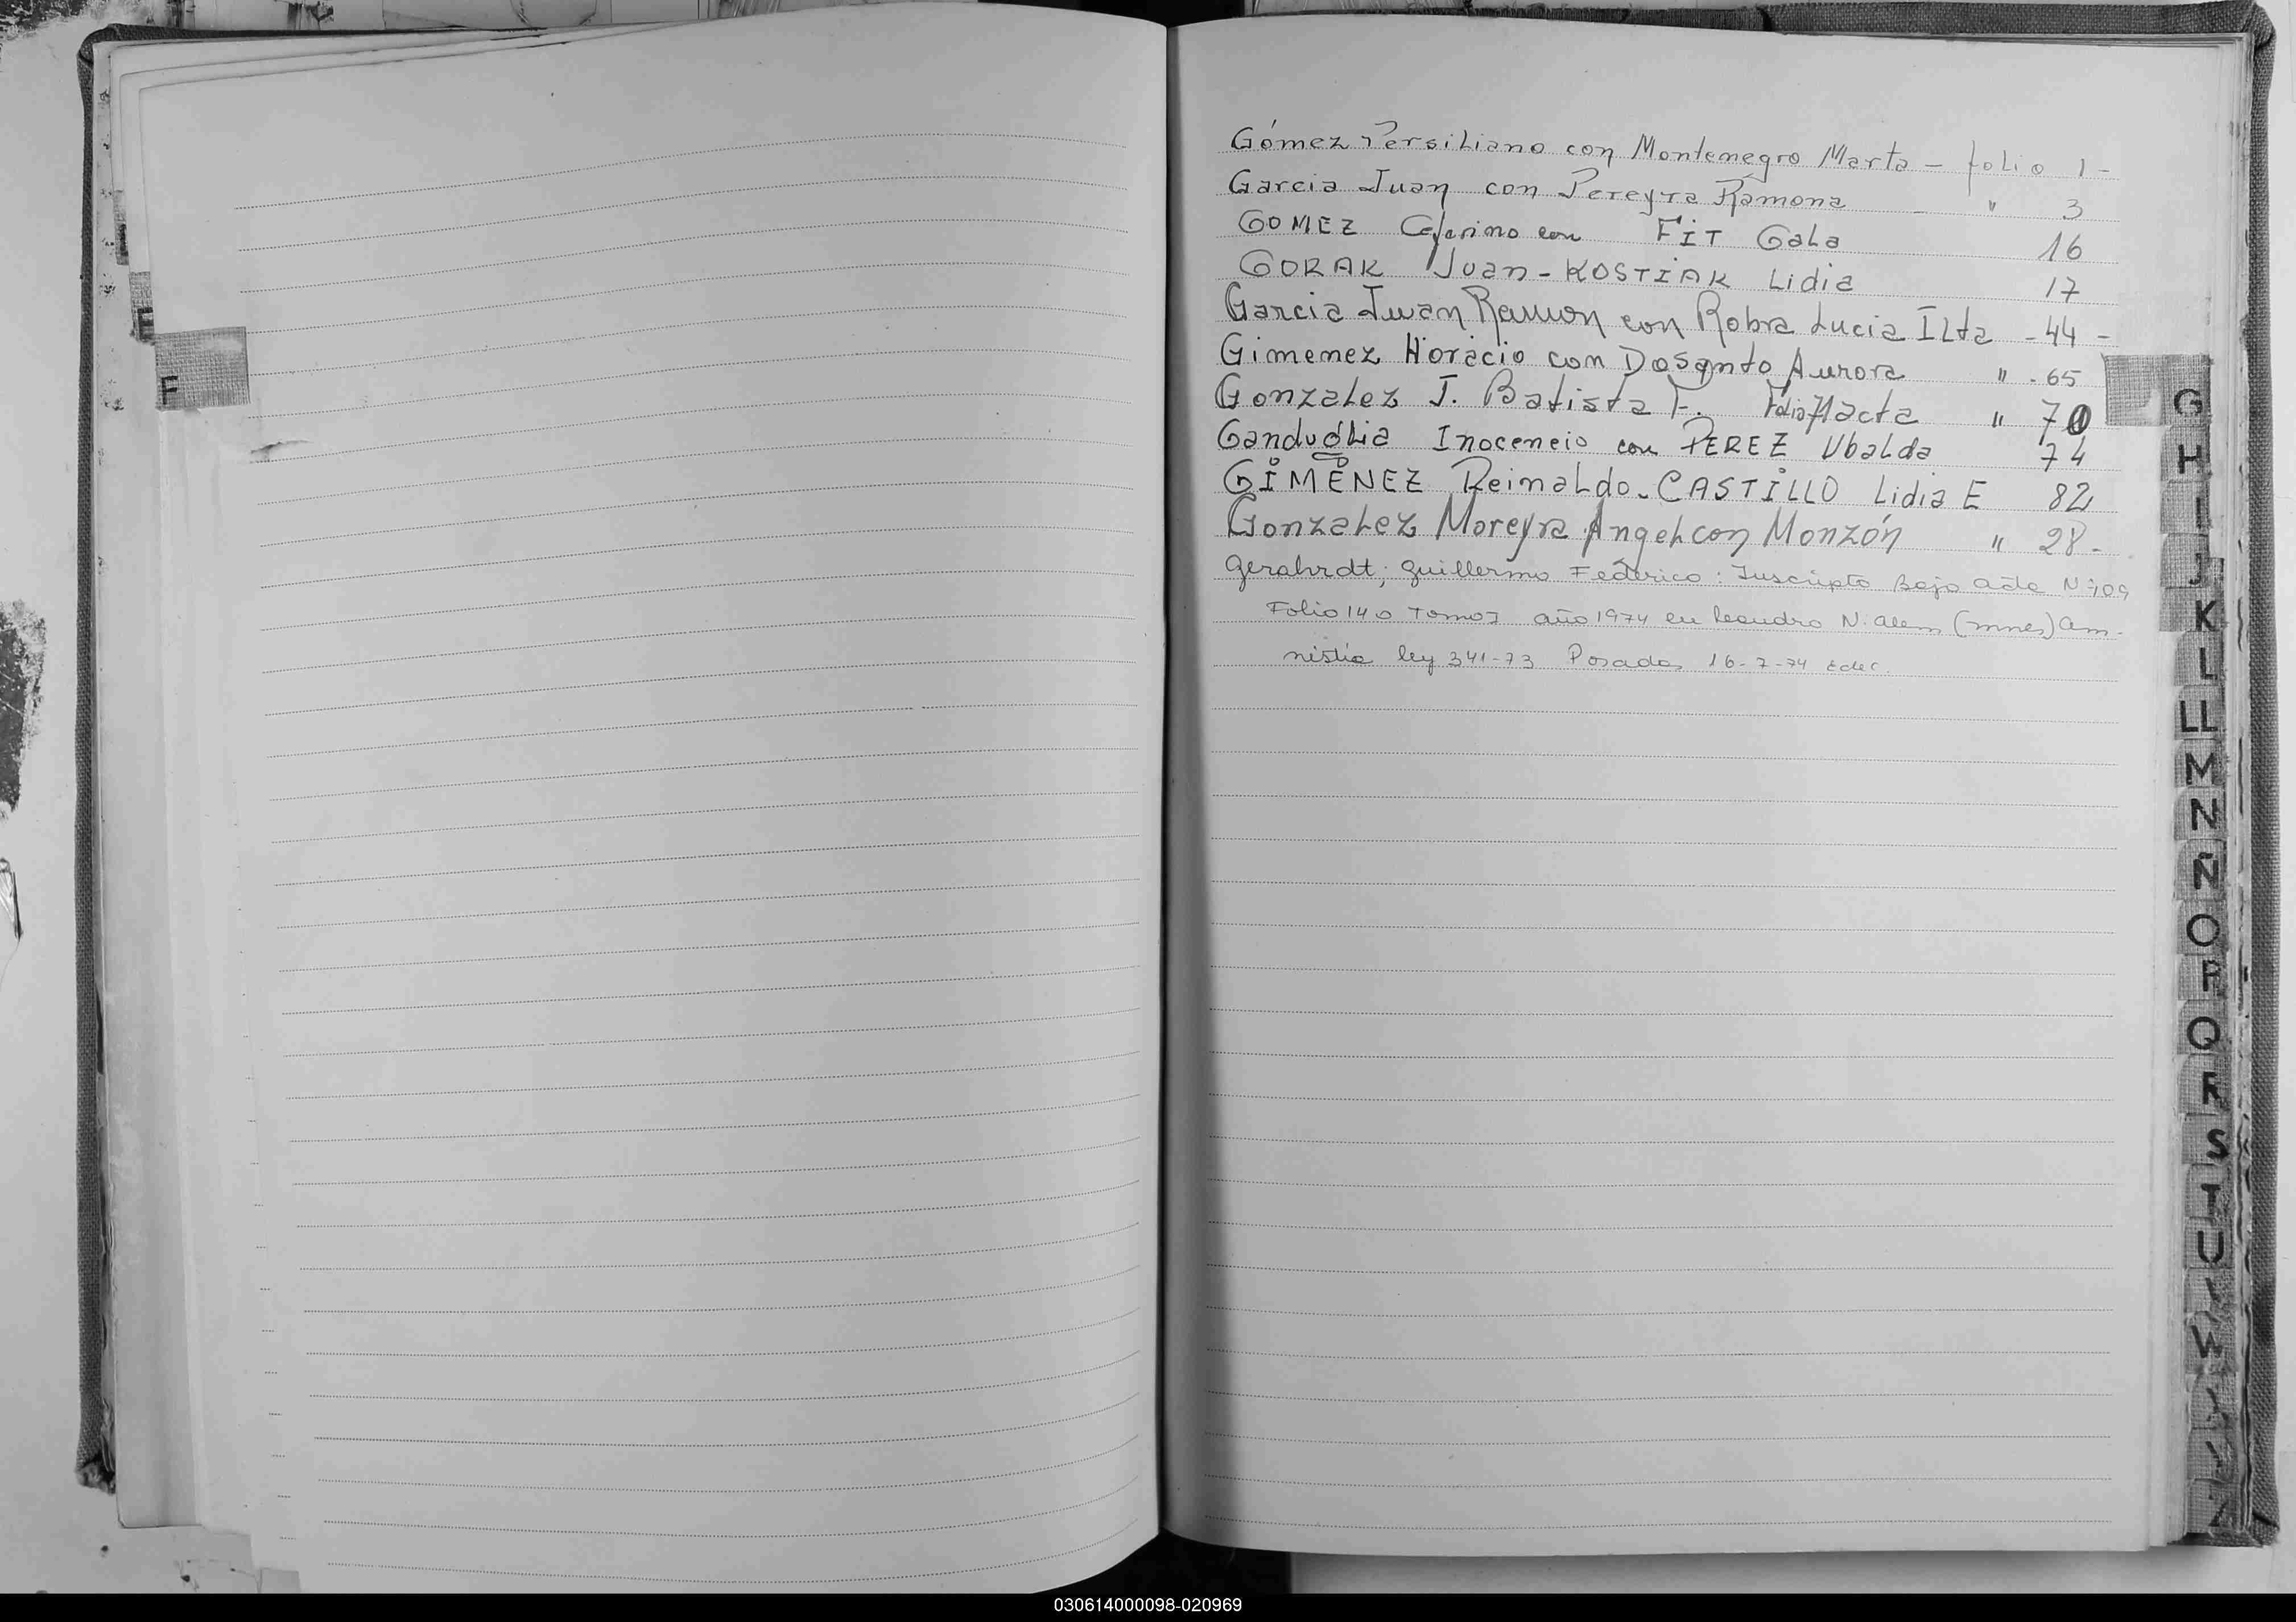 F
Gómez Persiliano con Montenegro Marta - folio 1 -
Garcia Juan con Pereyra Ramona - " 3
GOMEZ Ceferino con FIT Gala 16
GORAK Juan - KOSTIAK Lidia 17
Garcia Juan Ramon con Robra Lucia Ilda - 44 -
Gimenez Horacio con Dosanto Aurora " - 65
Gonzalez J. Batista F. Folio 71 acta " 70
Ganduglia Inocencio con PEREZ Ubalda 74
GIMÉNEZ Reinaldo - CASTILLO Lidia E 82
Gonzalez Moreyra Angel con Monzón " 28 -
Gerahrdt; Guillermo Federico: Inscripto Bajo acta Nº 109
Folio 140 Tomo I año 1974 en Leandro N. Alem (mnes) am-
nistia ley 341-73 Posadas 16-7-74
G
H
I
J
K
L
LL
M
N
Ñ
O
P
Q
R
S
T
U
W
030614000098-020969